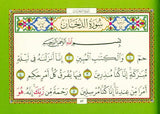 سُورَةُ الدُّخَانِ
بِسْمِ اللَّهِ الرَّحْمَٰنِ الرَّحِيمِ
حمٓ وَالْكِتَابِ الْمُبِينِ إِنَّا أَنزَلْنَاهُ فِي لَيْلَةٍ
مُّبَارَكَةٍ إِنَّا كُنَّا مُنذِرِينَ فِيهَا يُفْرَقُ كُلُّ أَمْرٍ حَكِيمٍ
أَمْرًا مِّنْ عِندِنَا إِنَّا كُنَّا مُرْسِلِينَ رَحْمَةً مِّن رَّبِّكَ إِنَّهُ هُوَ